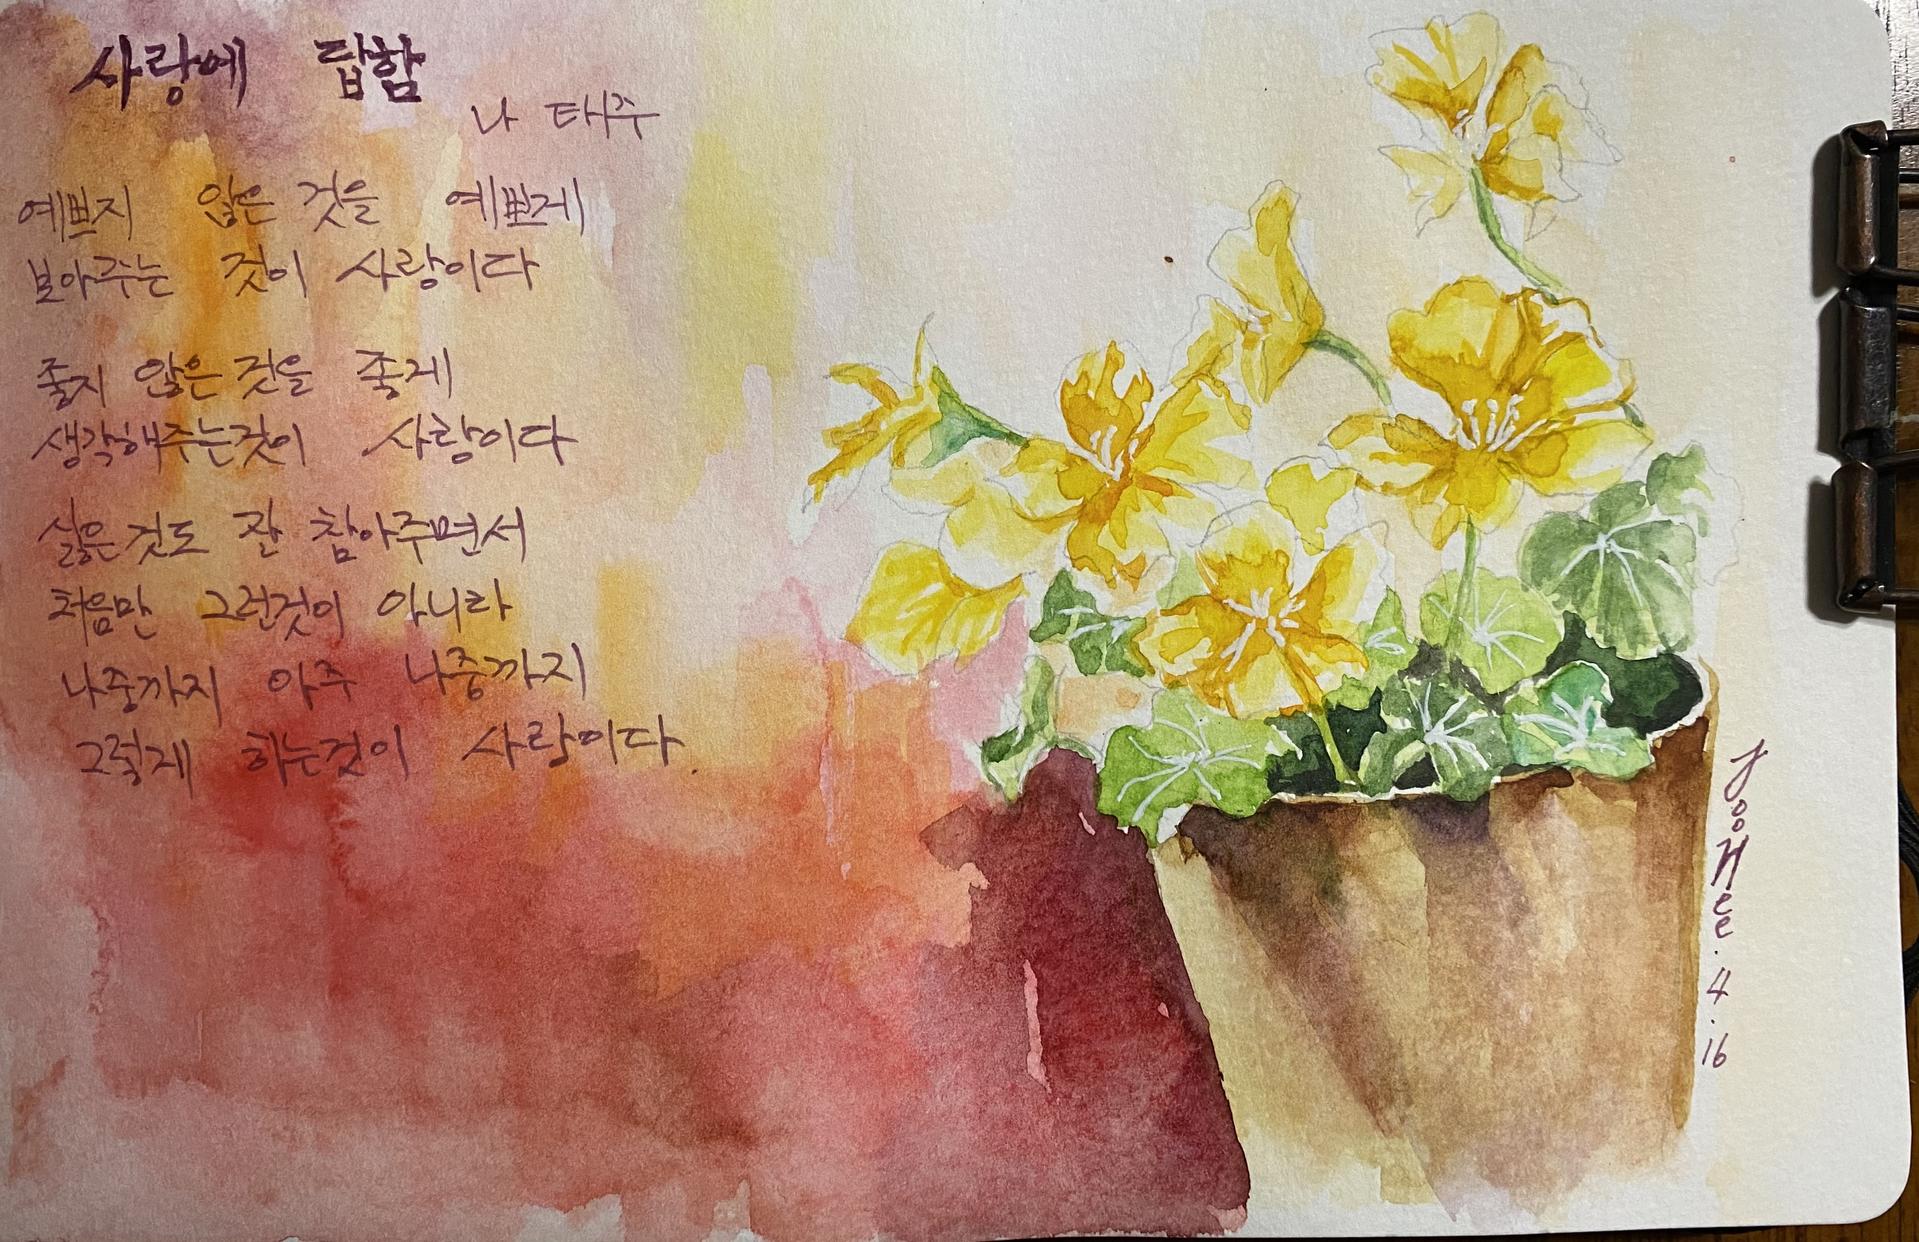 사랑에 답함
나 태주
예쁘지 않은 것을 예쁘게
보아주는 것이 사랑이다
좋지 않은 것을 좋게
생각해주는것이 사랑이다
싫은것도 잘 참아주면서
처음만 그런것이 아니라
나중까지 아주 나중까지
그렇게 하는것이 사랑이다.
JooHee. 4. 16